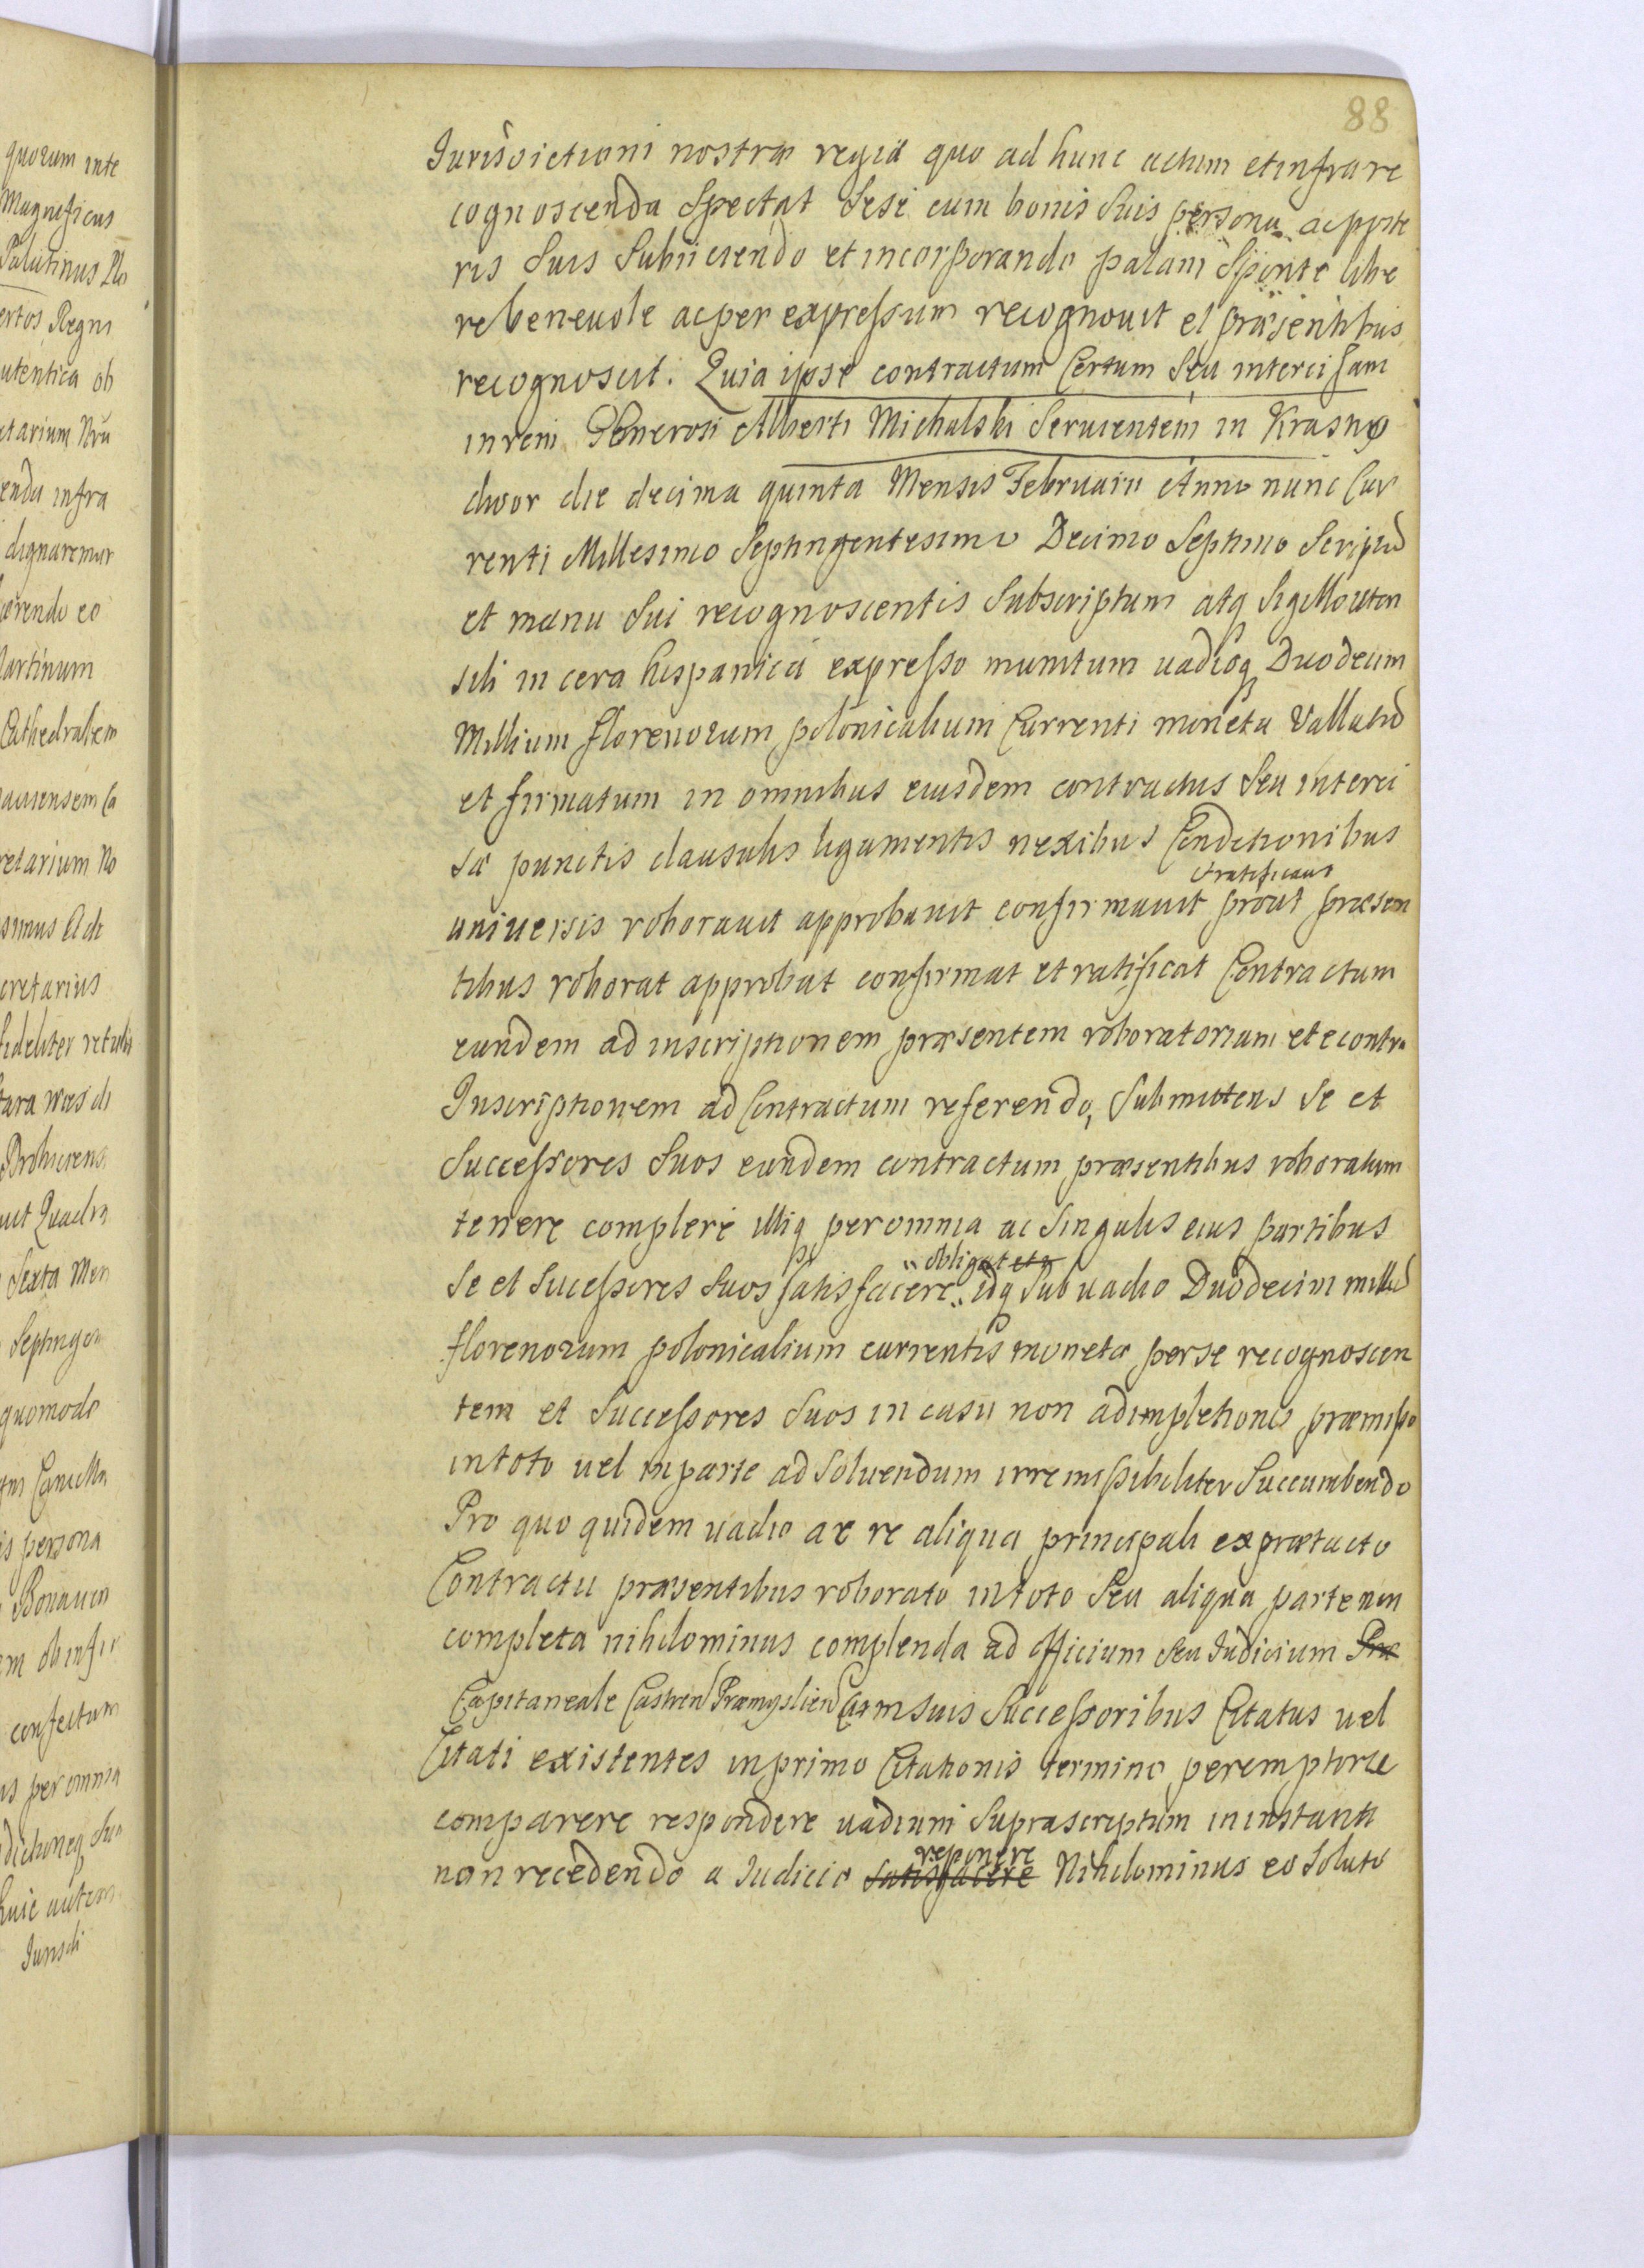 quorum inte
Magnificus
Palatinus
Regni
utentica ob
etarium Nru
enda infra
dignaremur
rendo eo
artinum
Cathedralem
ensem Ca
retarium No
simus
cretarius
fideliter retuli
Sexta Men
quomodo
is persona
Bonauen
confectum
as per omnia
huic autem
Jurisdi
88
Jurisdictioni nostræ regiæ quo ad hunc actum et infra re
cognoscenda Spectat Sese cum bonis Suis persona ac poste
ris Suis Subiiciendo et incorporando palam Sponte libe
re beneuole ac per expressum recognouit et præsentibus
recognoscit. Quia ipse contractum Certum Seu intercisam
in rem Generosi Alberti Michalski Seruientem in Krasny
dwor die decima quinta Mensis Februarii Anno nunc Cur
renti Millesimo Septingentesimo Decimo Septimo Scriptū
et manu Sui recognoscentis Subscriptum atq Sigillo uten
sili in cera hispanica expresso munitum uadioq Duodecim
Millium florenorum polonicalium Currenti moneta Vallatū
et firmatum in omnibus eiusdem contractus Seu interci
sæ punctis clausulis ligamentis nexibus Conditionibus
et ratificauit
uniuersis roborauit approbauit confirmauit prout præsen
tibus roborat approbat confirmat et ratificat Contractum
eundem ad inscriptionem præsentem roboratoriam et e contra
Inscriptionem ad Contractum referendo, Submittens Se et
Successores Suos eundem contractum præsentibus roboratum
tenere complere illiq per omnia ac Singulis eius partibus
obligat etq
Se et Successores Suos satisfacere idq Sub uadio Duodecim milliū
florenorum polonicalium currentis monetæ per se recognoscen
tem et Successores Suos in casu non adimpletionis præmisso
in toto uel in parte ad Soluendum irremissibiliter Succumbendo
Pro quo quidem uadio ac re aliqua principali ex prætacto
Contractu præsentibus roborato in toto Seu aliqua parte non
completa nihilominus complenda ad Officium Seu Judicium Præ
Capitaneale Castren Præmyslien Cum Suis Successoribus Citatus uel
Citati existentes in primo Citationis termino peremptorie
comparere respondere uadium Suprascriptum in instanti
reponere
non recedendo a Judicio satisfacere Nihilominus eo Soluto